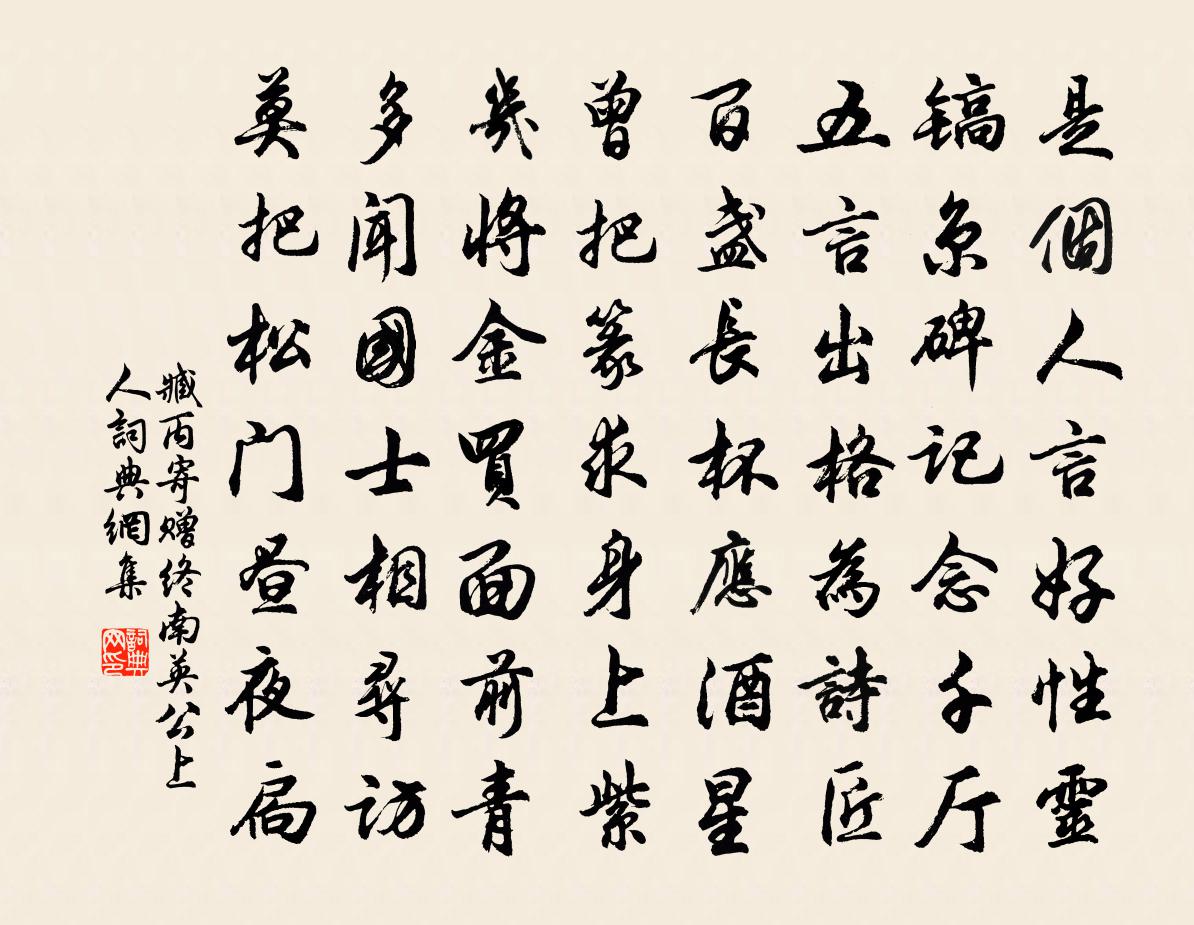 是個人言好性靈
镐京碑记念千厅
五言出格為詩匠
百盏長杯應酒星
曾把篆求身上紫
幾將金買面前青
多聞國士相尋访
莫把松门昼夜扃
臧丙寄赠终南英公上
人詞典網集
詞典网印